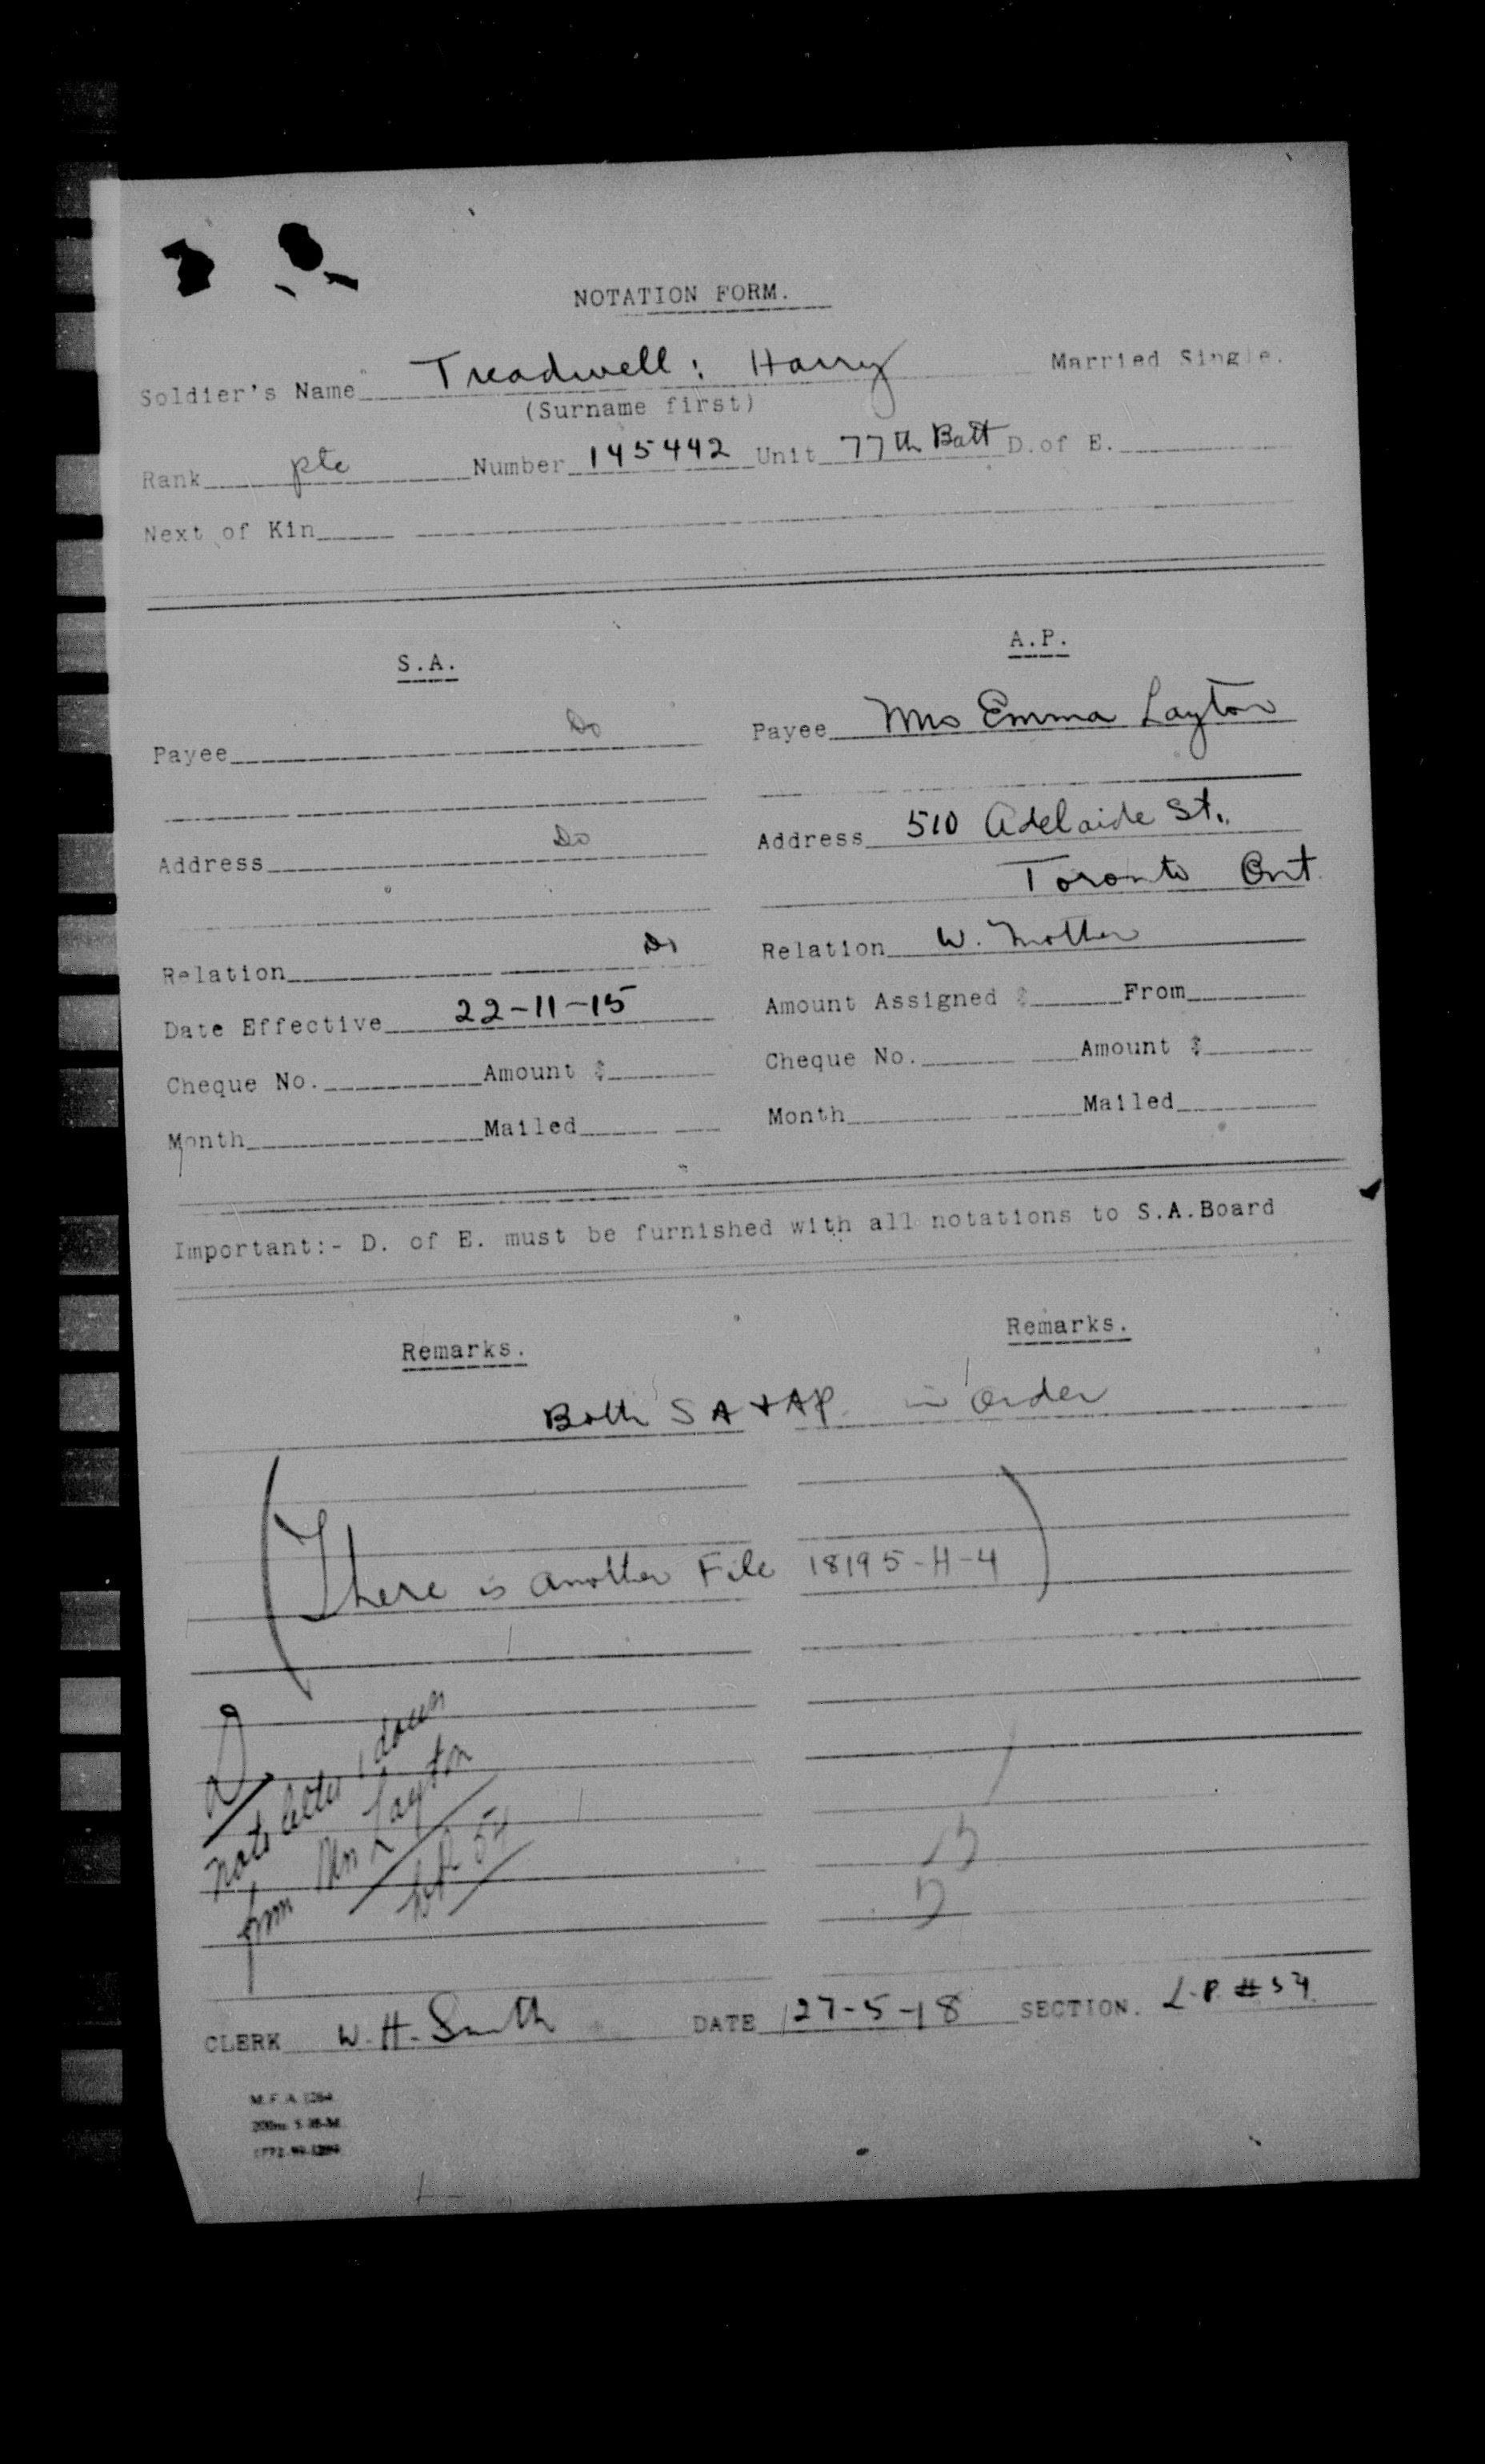 NOTATION FORM.
Soldier's Name Treadwell: Harry Married Single.
(Surname first)
Rank pte Number 145442 Unit 77th Batt D. of E.
Next of Kin
S.A. A.P.
Payee Do Payee Mrs Emma Layton
Address Do Address 510 Adelaide St.,
Toronto Ont.
Relation Do Relation W. Mother
Date Effective 22-11-15 Amount Assigned $ From
Cheque No. Amount $ Cheque No. Amount $
Month Mailed Month Mailed
Important:- D. of E. must be furnished with all notations to S.A.Board
Remarks. Remarks.
Both SA + AP in order
(There is another File 18195-H-4)
Note letter down
from Mrs Layton
CLERK W.H. Smith DATE 27-5-18 SECTION. L.P. #54
M.F.A.